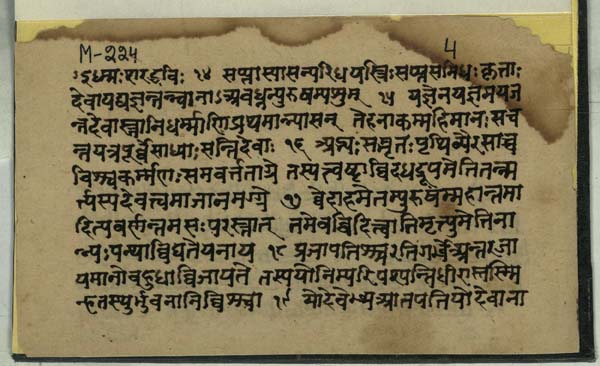 M-224
4
ऽइध्मः शरद्धविः १४ सप्तास्यासन्परिधयस्त्रिः सप्तसमिधः कृताः
देवायद्यज्ञन्तन्वानाऽअबध्नन्पुरुषम्पशुम् १५ यज्ञेनयज्ञमयज
न्तदेवास्तानिधर्म्माणिप्रथमान्यासन् तेहनाकम्महिमानः सच
न्तयत्रपूर्व्वेसाध्याः सन्तिदेवाः १६ अद्भ्यः सम्भृतः पृथिव्यैरसाच्च
विश्वकर्म्मणः समवर्त्तताग्रे तस्यत्वष्टाव्विदधद्रूपमेतितन्म
र्त्यस्यदेवत्वमाजानमग्रे १७ व्वेदाहमेतम्पुरुषम्महान्तमा
दित्यवर्णन्तमसः परस्तात् तमेवव्विदित्वातिमृत्युमेतिना
न्यः पन्थाव्विद्यतेयनाय १८ प्रजापतिश्चरतिगर्ब्भेअन्तरजा
यमानोबहुधाव्विजायते तस्ययोनिम्परिपश्यन्तिधीरास्तस्मि
न्हतस्थुर्भुवनानिव्विश्वा १९ योदेवेभ्यआतपतियोदेवाना